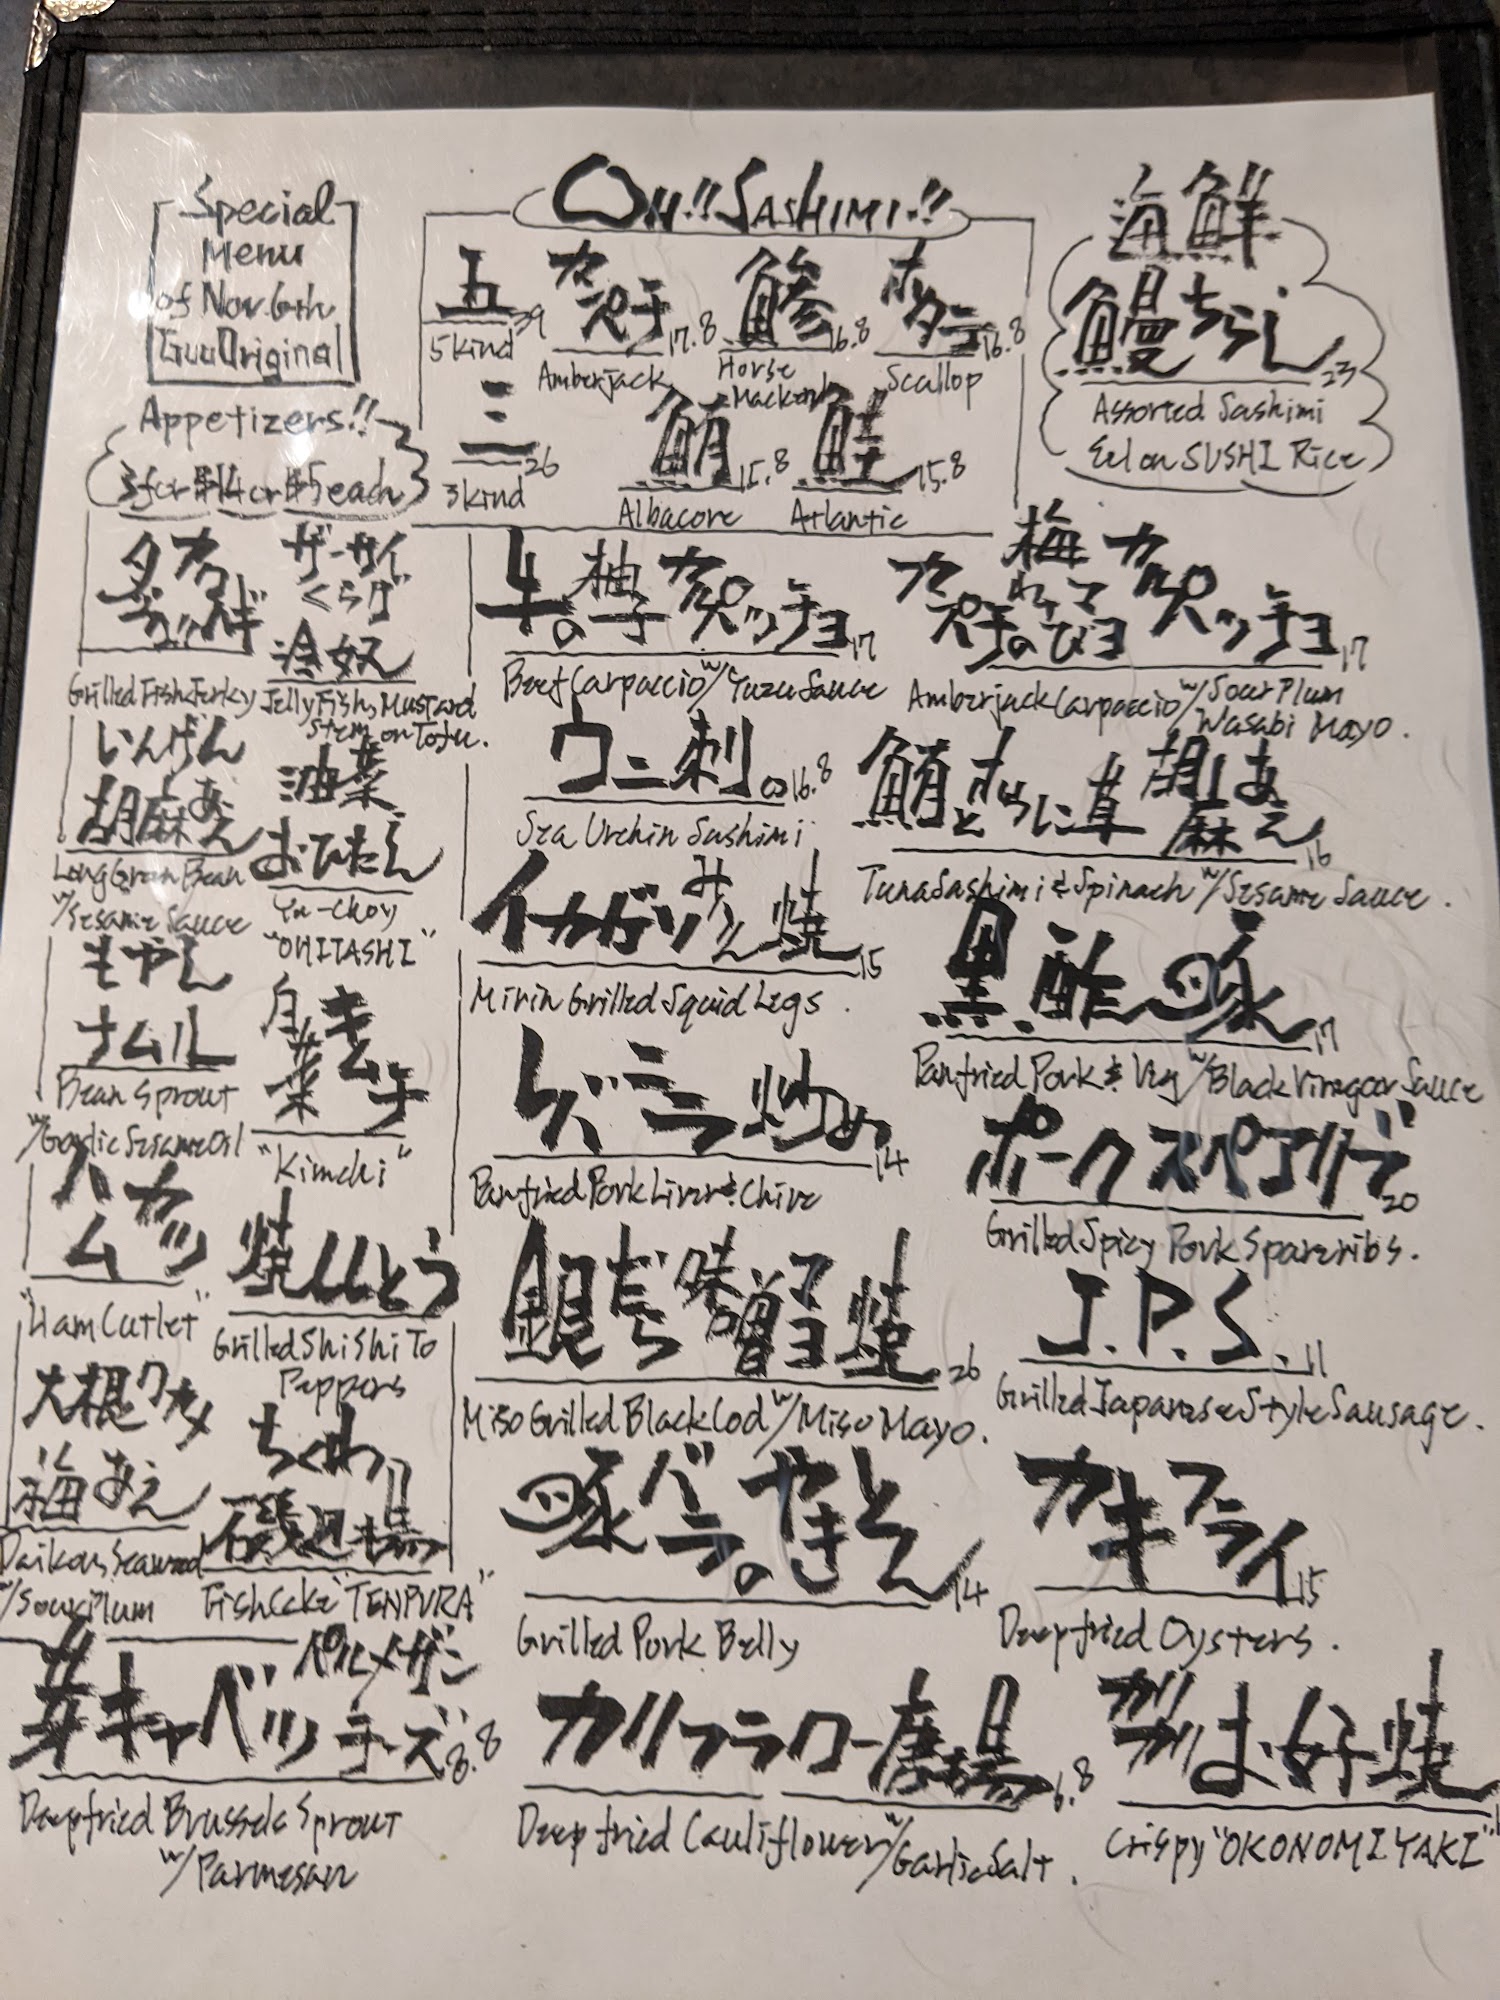 Special
Menu
of Nov. 6th
Guu Original
OH!! SASHIMI!!
五 39
5 kind
カンパチ 17.8
Amberjack
鯵 16.8
Horse
Mackerel
ホタテ 16.8
Scallop
三 26
3 kind
鮪 15.8
Albacore
鮭 15.8
Atlantic
海鮮
鰻ちらし 23
Assorted Sashimi
Eel on SUSHI Rice
Appetizers!!
3 for $14 or $5 each
Grilled Fish Jerky
ザーサイ
くらげ
冷奴
Jelly Fish, Mustard
Stem on Tofu.
いんげん
胡麻あえ
Long Green Bean
w/ Sesame Sauce
油菜
おひたし
Yu-choy
"OHITASHI"
もやし
ナムル
Bean Sprout
w/ Garlic Sesame Oil
白菜キムチ
"Kimchi"
ハムカツ
"Ham Cutlet"
焼ししとう
Grilled ShiShiTo
Peppers
大根ワカメ
梅あえ
Daikon, Seaweed
w/ Sour Plum
ちくわ
磯辺揚
Fish Cake "TENPURA"
芽キャベツ パルメザンチーズ 8.8
Deepfried Brussels Sprout
w/ Parmesan
牛の柚子カルパッチョ 17
Beef Carpaccio w/ Yuzu Sauce
カンパチのわさびマヨ 梅カルパッチョ 17
Amberjack Carpaccio w/ Sour Plum
Wasabi Mayo.
ウニ刺 16.8
Sea Urchin Sashimi
鮪とほうれん草 胡麻あえ 16
Tuna Sashimi & Spinach w/ Sesame Sauce.
イカゲソみりん焼 15
Mirin Grilled Squid Legs.
黒酢豚 17
Panfried Pork & Veg w/ Black Vinegar Sauce
レバニラ炒め 14
Panfried Pork Liver & Chive
ポークスペアリブ 20
Grilled Spicy Pork Spareribs.
銀だら味噌マヨ焼 26
Miso Grilled Black Cod w/ Miso Mayo.
J.P.S. 11
Grilled Japanese Style Sausage.
豚バラのやきとん 14
Grilled Pork Belly
カキフライ 15
Deepfried Oysters.
カリフラワー唐揚 6.8
Deepfried Cauliflower w/ Garlic Salt.
カリカリお好焼
Crispy "OKONOMIYAKI"